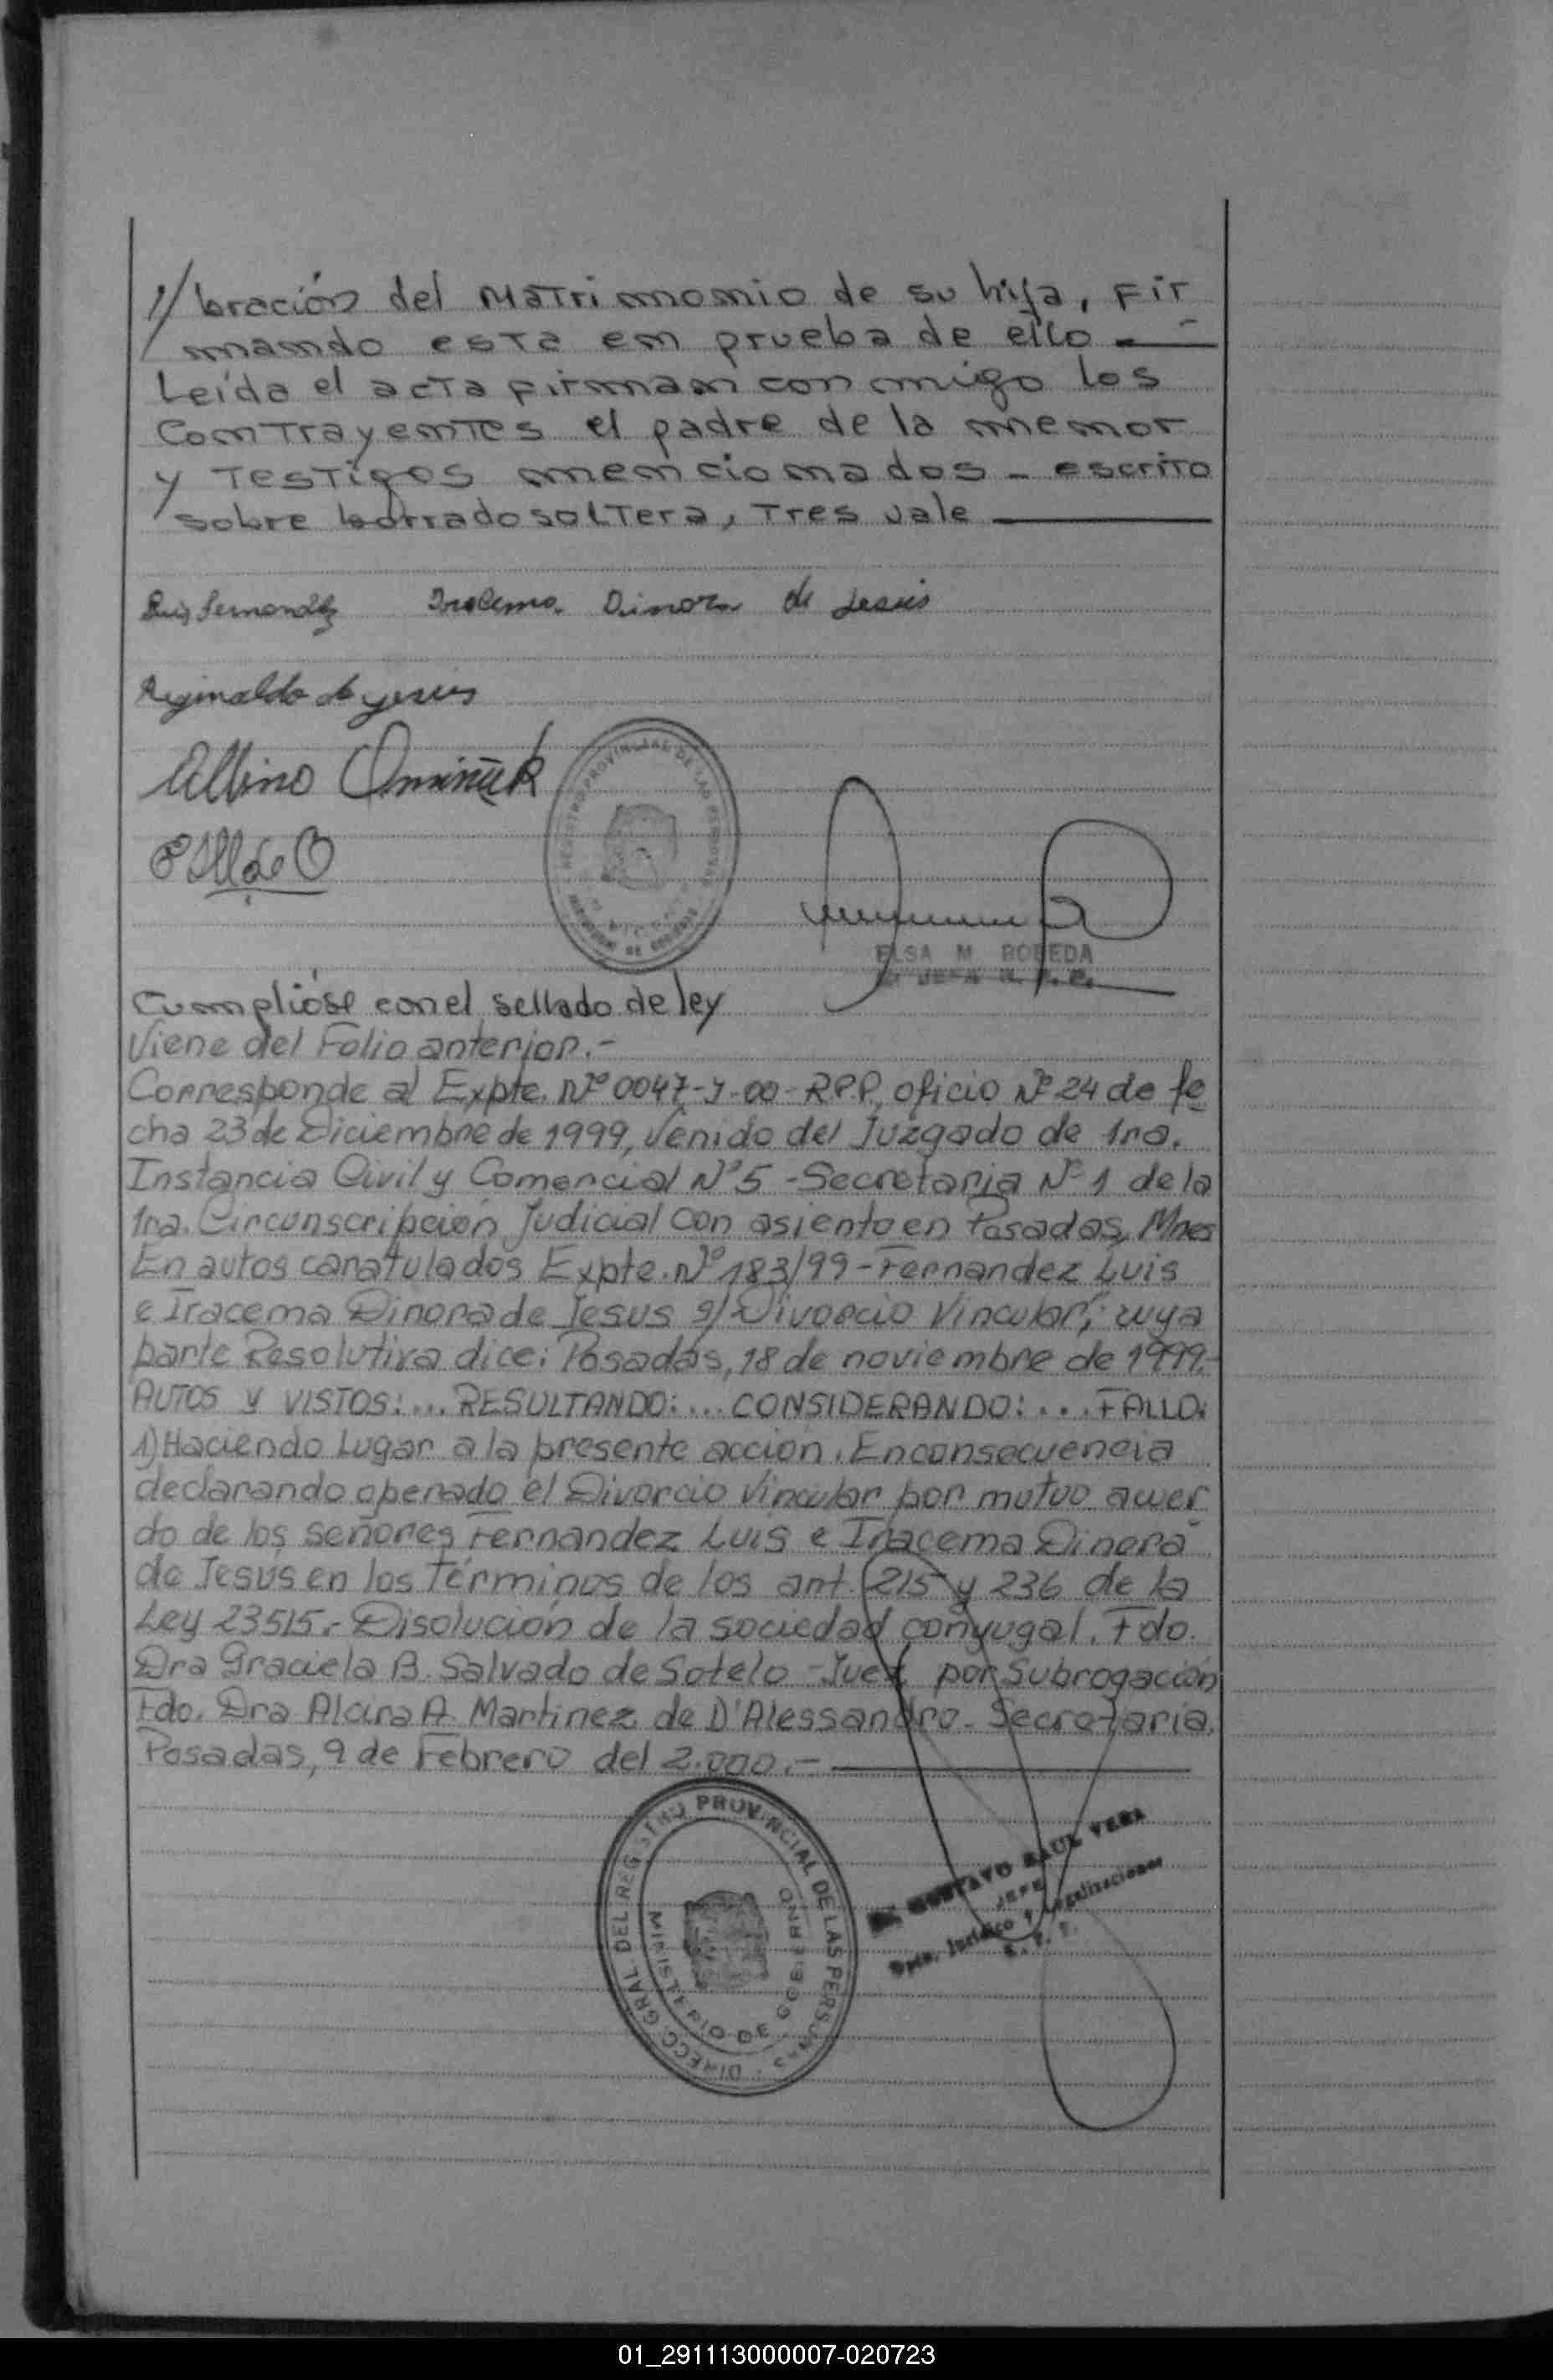 //bración del Matrimonio de su hija, Fir
mando esta en prueba de ello
Leída el acta firman conmigo los
Contrayentes el padre de la menor
y Testigos mencionados - escrito
sobre borrado soltera, Tres vale
Luis Fernandez Iracema Dinora de Jesus
Reginaldo de Jesus
Albino
REGISTRO PROVINCIAL DE LAS PERSONAS
ELSA M BOBEDA
JEFA R.P.P.
Cumplióse con el sellado de ley
Viene del Folio anterior.-
Corresponde al Expte. Nº 0047-J-00-R.P.P, oficio Nº 24 de fe
cha 23 de Diciembre de 1999, venido del Juzgado de 1ra.
Instancia Civil y Comercial Nº 5 - Secretaria Nº 1 de la
1ra. Circunscripción Judicial con asiento en Posadas, Mnes
En autos caratulados Expte. Nº 183/99 - Fernandez Luis
e Iracema Dinora de Jesus s/ Divorcio Vincular", cuya
parte Resolutiva dice: Posadas, 18 de noviembre de 1999.-
AUTOS Y VISTOS:... RESULTANDO:... CONSIDERANDO:... FALLO:
1) Haciendo Lugar a la presente acción. En consecuencia
declarando operado el Divorcio Vincular por mutuo acuer
do de los señores Fernandez Luis e Iracema Dinora
de Jesús en los Términos de los art. 215 y 236 de la
Ley 23515.- Disolución de la sociedad conyugal. Fdo.
Dra Graciela B. Salvado de Sotelo - Juez por Subrogación
Fdo. Dra Alcira A. Martinez de D'Alessandro - Secretaria.
Posadas, 9 de Febrero del 2.000.-
DIRECC. GRAL DEL REGISTRO PROVINCIAL DE LAS PERSONAS
MINISTERIO DE GOBIERNO
GUSTAVO RAUL VERA
JEFE
Dpto. Jurídico y Legalizaciones
R. P. P.
01_291113000007-020723